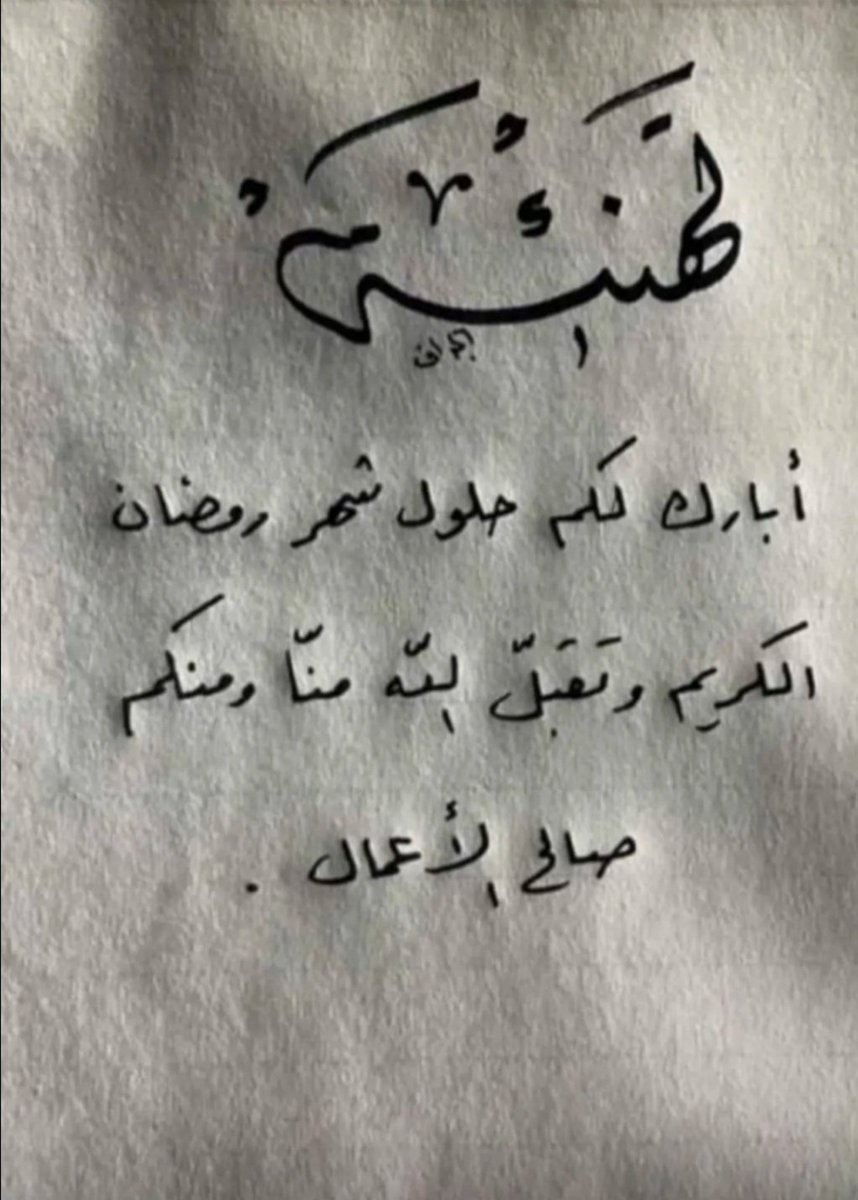 تَهنِئَتُكُم
أبارك لكم حلول شهر رمضان
الكريم وتَقَبّلَ الله منّا ومنكم
صالح الأعمال .